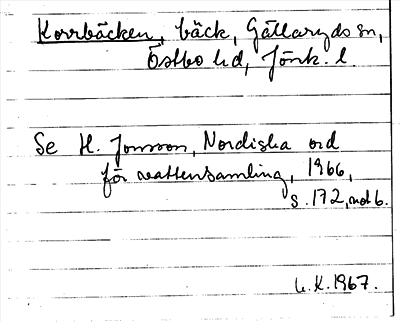 Korrbäcken, bäck, Gällaryds sn,
Östbo hd, Jönk. l.
Se H. Jonsson, Nordiska ord
för vattensamling, 1966,
s. 172, not 6.
L.K. 1967.